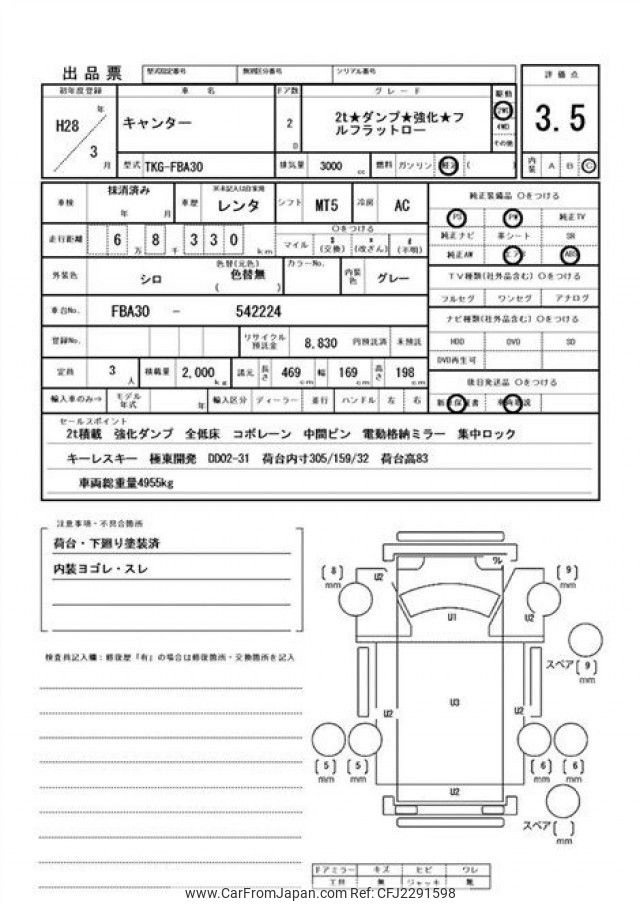 出品票 型式指定番号 類別区分番号 シリアル番号
初年度登録 車名 ドア数 グレード 駆動 評価点
H28年 3月 キャンター 2D 2t★ダンプ★強化★フルフラットロー 2WD 4WD その他 3.5
型式 TKG-FBA30 排気量 3000cc 燃料 ガソリン 軽油 ( ) 内装 A B C
車検 抹消済み 年 月 車歴 ※未記入は自家用 レンタ シフト MT5 冷房 AC 純正装備品 〇をつける
PS PW 純正TV
走行距離 6万8千330km 〇をつける マイル $(交換) *(改ざん) #(不明) 純正ナビ 革シート SR
純正AW エアB ABS
外装色 シロ 色替(元色) 色替無 ( ) カラーNo. 内装色 グレー TV種類(社外品含む)〇をつける
フルセグ ワンセグ アナログ
車台No. FBA30 - 542224 ナビ種類(社外品含む)〇をつける
登録No. リサイクル預託金 8,830 円預託済 未預託 HDD DVD SD
DVD再生可
定員 3人 積載量 2,000kg 諸元 長さ 469cm 幅 169cm 高さ 198cm 後日発送品 〇をつける
輸入車のみ⇒ モデル年式 年 輸入区分 ディーラー 並行 ハンドル 左 右 新車保証書 車両取説
セールスポイント
2t積載 強化ダンプ 全低床 コボレーン 中間ピン 電動格納ミラー 集中ロック
キーレスキー 極東開発 DD02-31 荷台内寸305/159/32 荷台高83
車両総重量4955kg
注意事項・不具合箇所
荷台・下廻り塗装済
内装ヨゴレ・スレ
検査員記入欄：修復歴「有」の場合は修復箇所・交換箇所を記入
ワレ
[8]mm U2 [9]mm
U1 U2
スペア[9]mm
U2 U3 U2
[5]mm [5]mm [6]mm [6]mm
U2
スペア[ ]mm
ドアミラー キズ ヒビ ワレ
工具 無 ジャッキ 無
www.CarFromJapan.com CFJ2291598